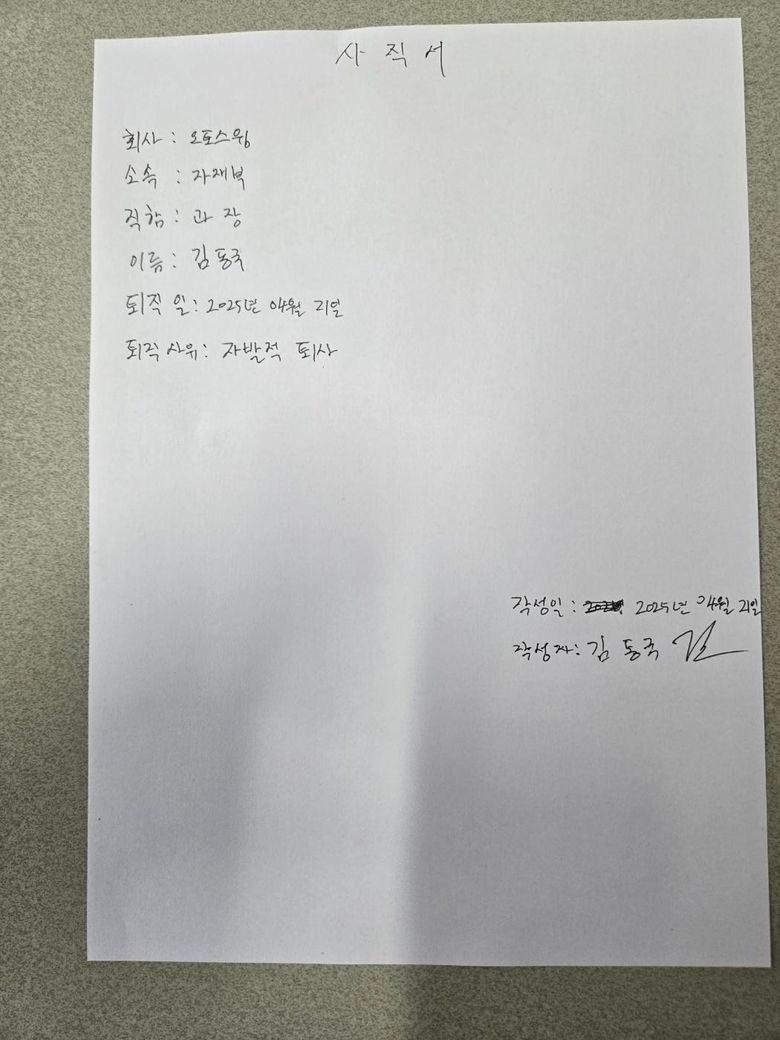 사 직 서
회사 : 오토스윙
소속 : 자재부
직함 : 과 장
이름 : 김동국
퇴직 일 : 2025년 04월 21일
퇴직 사유 : 자발적 퇴사
작성일 : 2025년 04월 21일
작성자 : 김 동국